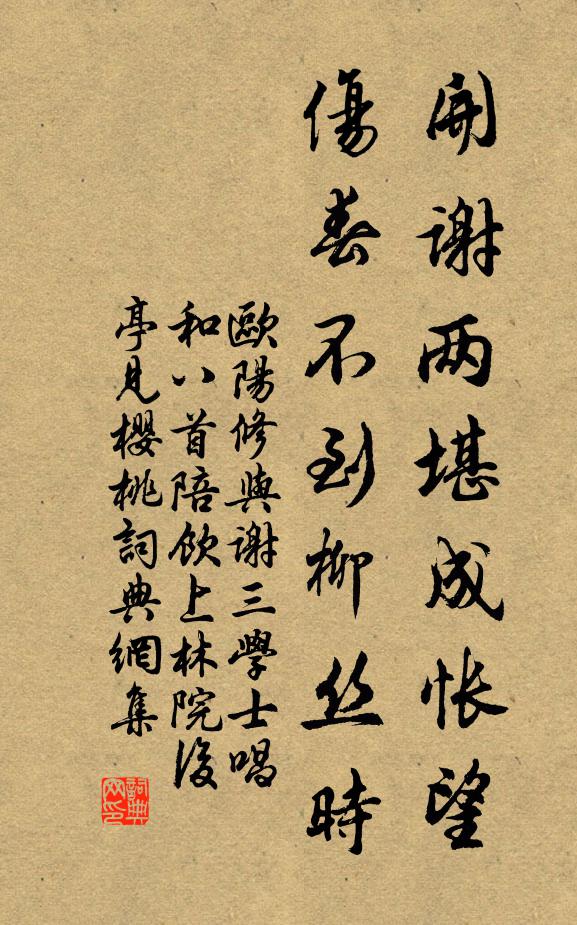 開謝两堪成悵望
傷春不到柳丝時
歐陽修與謝三學士唱
和八首陪飲上林院後
亭見櫻桃詞典網集
詞典
网印